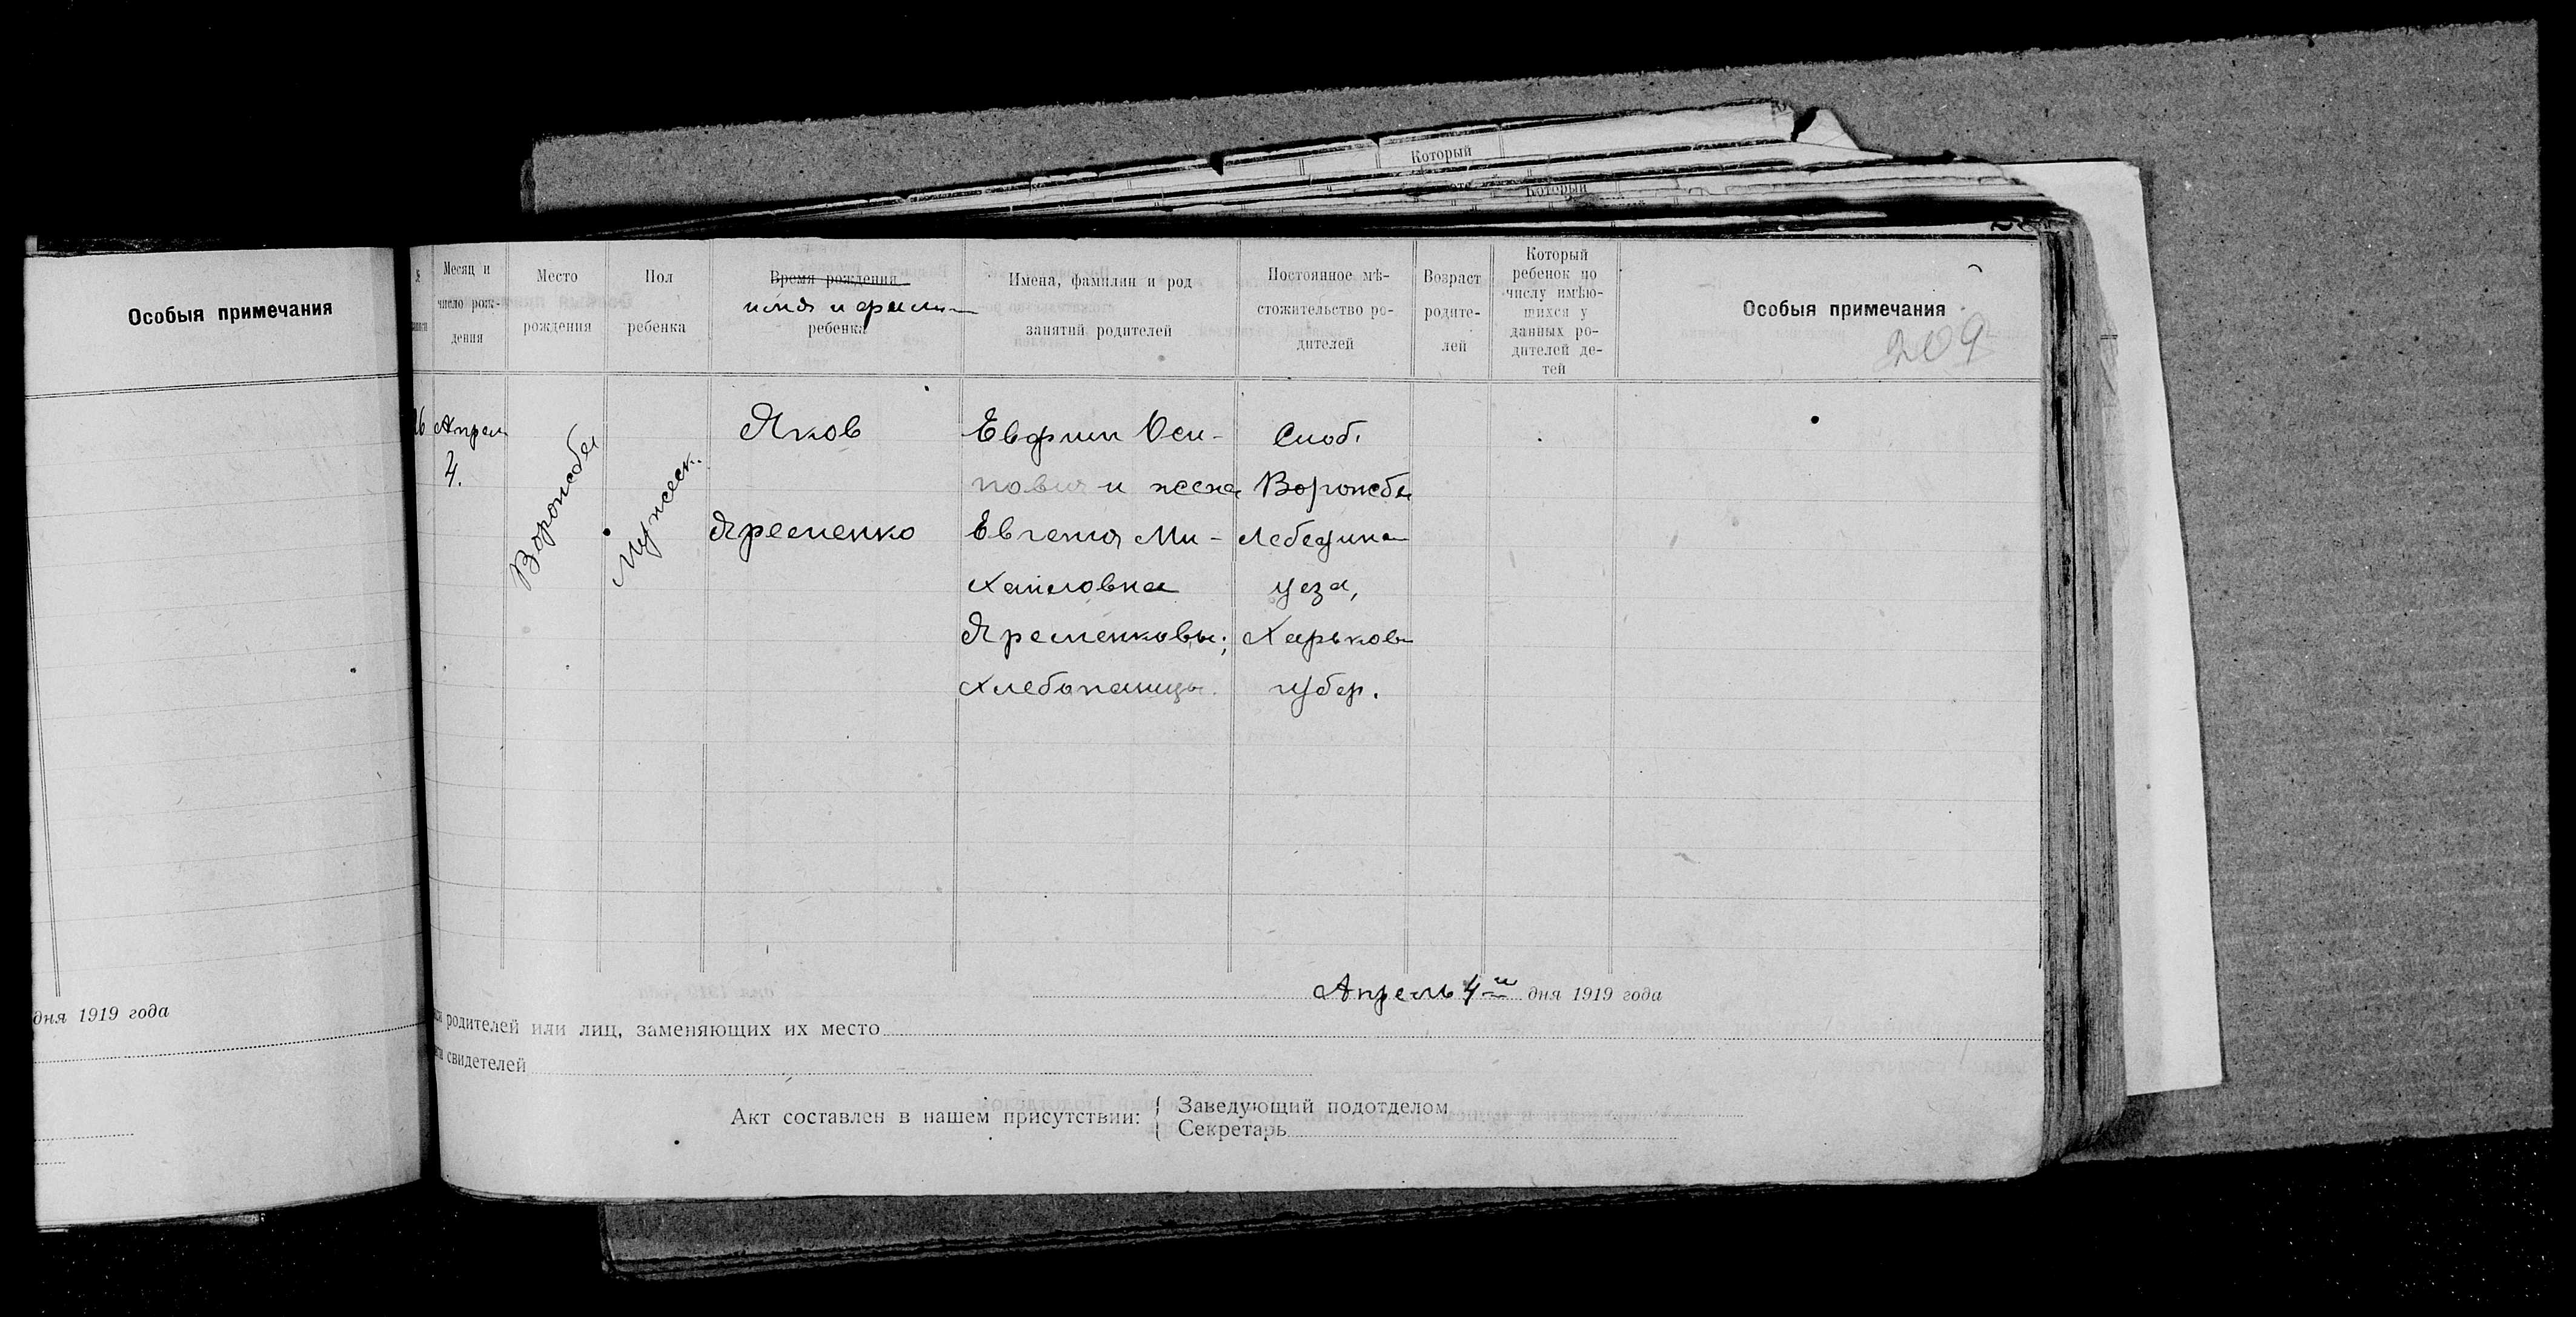 Который
Который
Особыя примечания
дня 1919 года
Месяц и
число рож-
дения
Место
рождения
Пол
ребенка
Время рождения
имя и фамил
ребенка
Имена, фамилии и род
занятий родителей
Постоянное мѣ-
стожительство ро-
дителей
Возраст
родите-
лей
Который
ребенок по
числу имѣю-
щихся у
данных ро-
дителей де-
тей
Особыя примечания
209
Апрел
4.
Ворожба
Мужеск.
Яков
Яременко
Евфим Оси-
пович и жена
Евгения Ми-
хайловна
Яременковы;
Хлебопашцы.
Слоб.
Ворожбы
Лебедина
уезд,
Харьков
губер.
Апрель 4 дня 1919 года
родителей или лиц, заменяющих их место
свидетелей
Акт составлен в нашем присутствии:
Заведующий подотделом
Секретарь